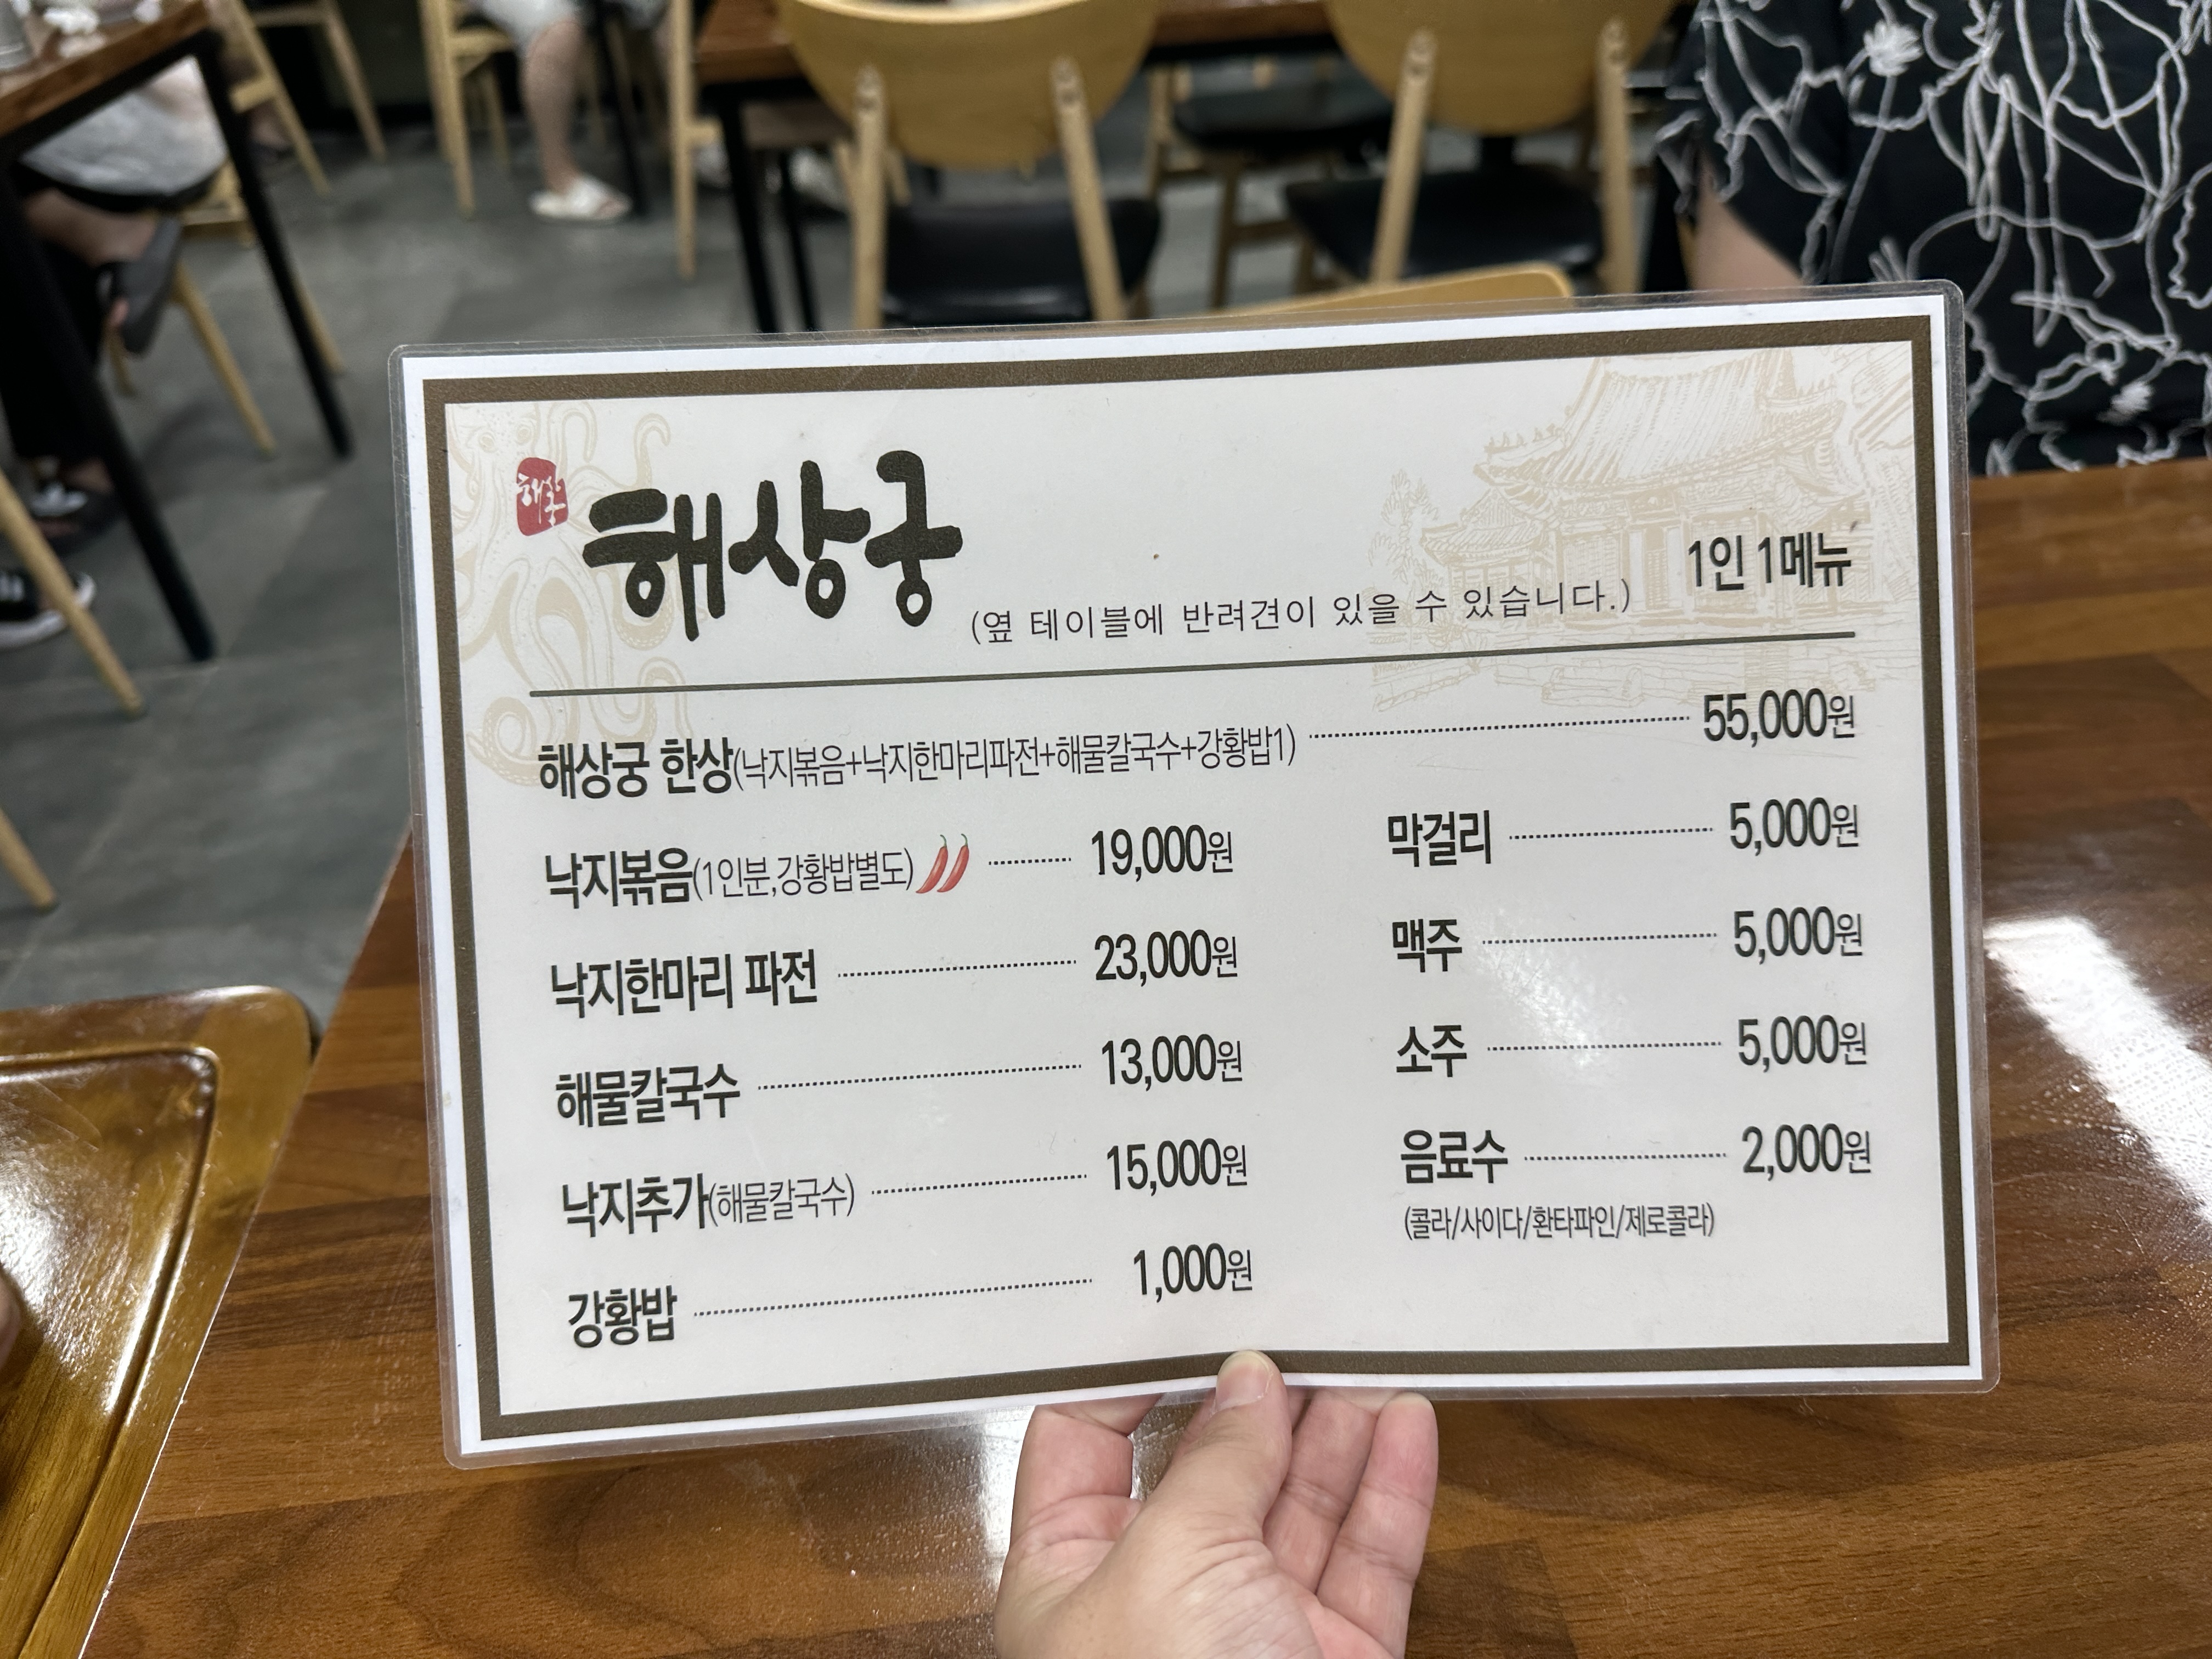 해상궁
해상궁
(옆 테이블에 반려견이 있을 수 있습니다.)
1인 1메뉴
해상궁 한상(낙지볶음+낙지한마리파전+해물칼국수+강황밥1) 55,000원
낙지볶음(1인분,강황밥별도) 19,000원
낙지한마리 파전 23,000원
해물칼국수 13,000원
낙지추가(해물칼국수) 15,000원
강황밥 1,000원
막걸리 5,000원
맥주 5,000원
소주 5,000원
음료수 2,000원
(콜라/사이다/환타파인/제로콜라)